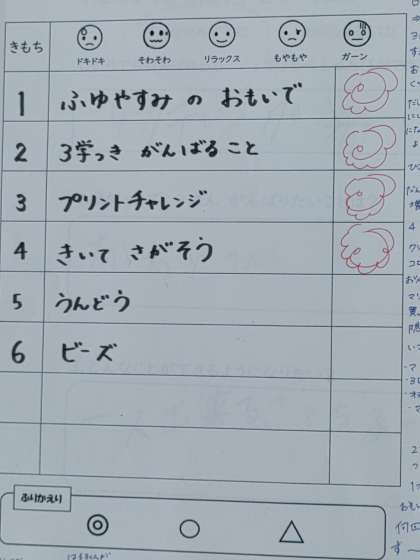 きもち
ドキドキ そわそわ リラックス もやもや ガーン
1 ふゆやすみ の おもいで
2 3学っき がんばる こと
3 プリントチャレンジ
4 きいて さがそう
5 うんどう
6 ビーズ
ふりかえり
◎ ○ △